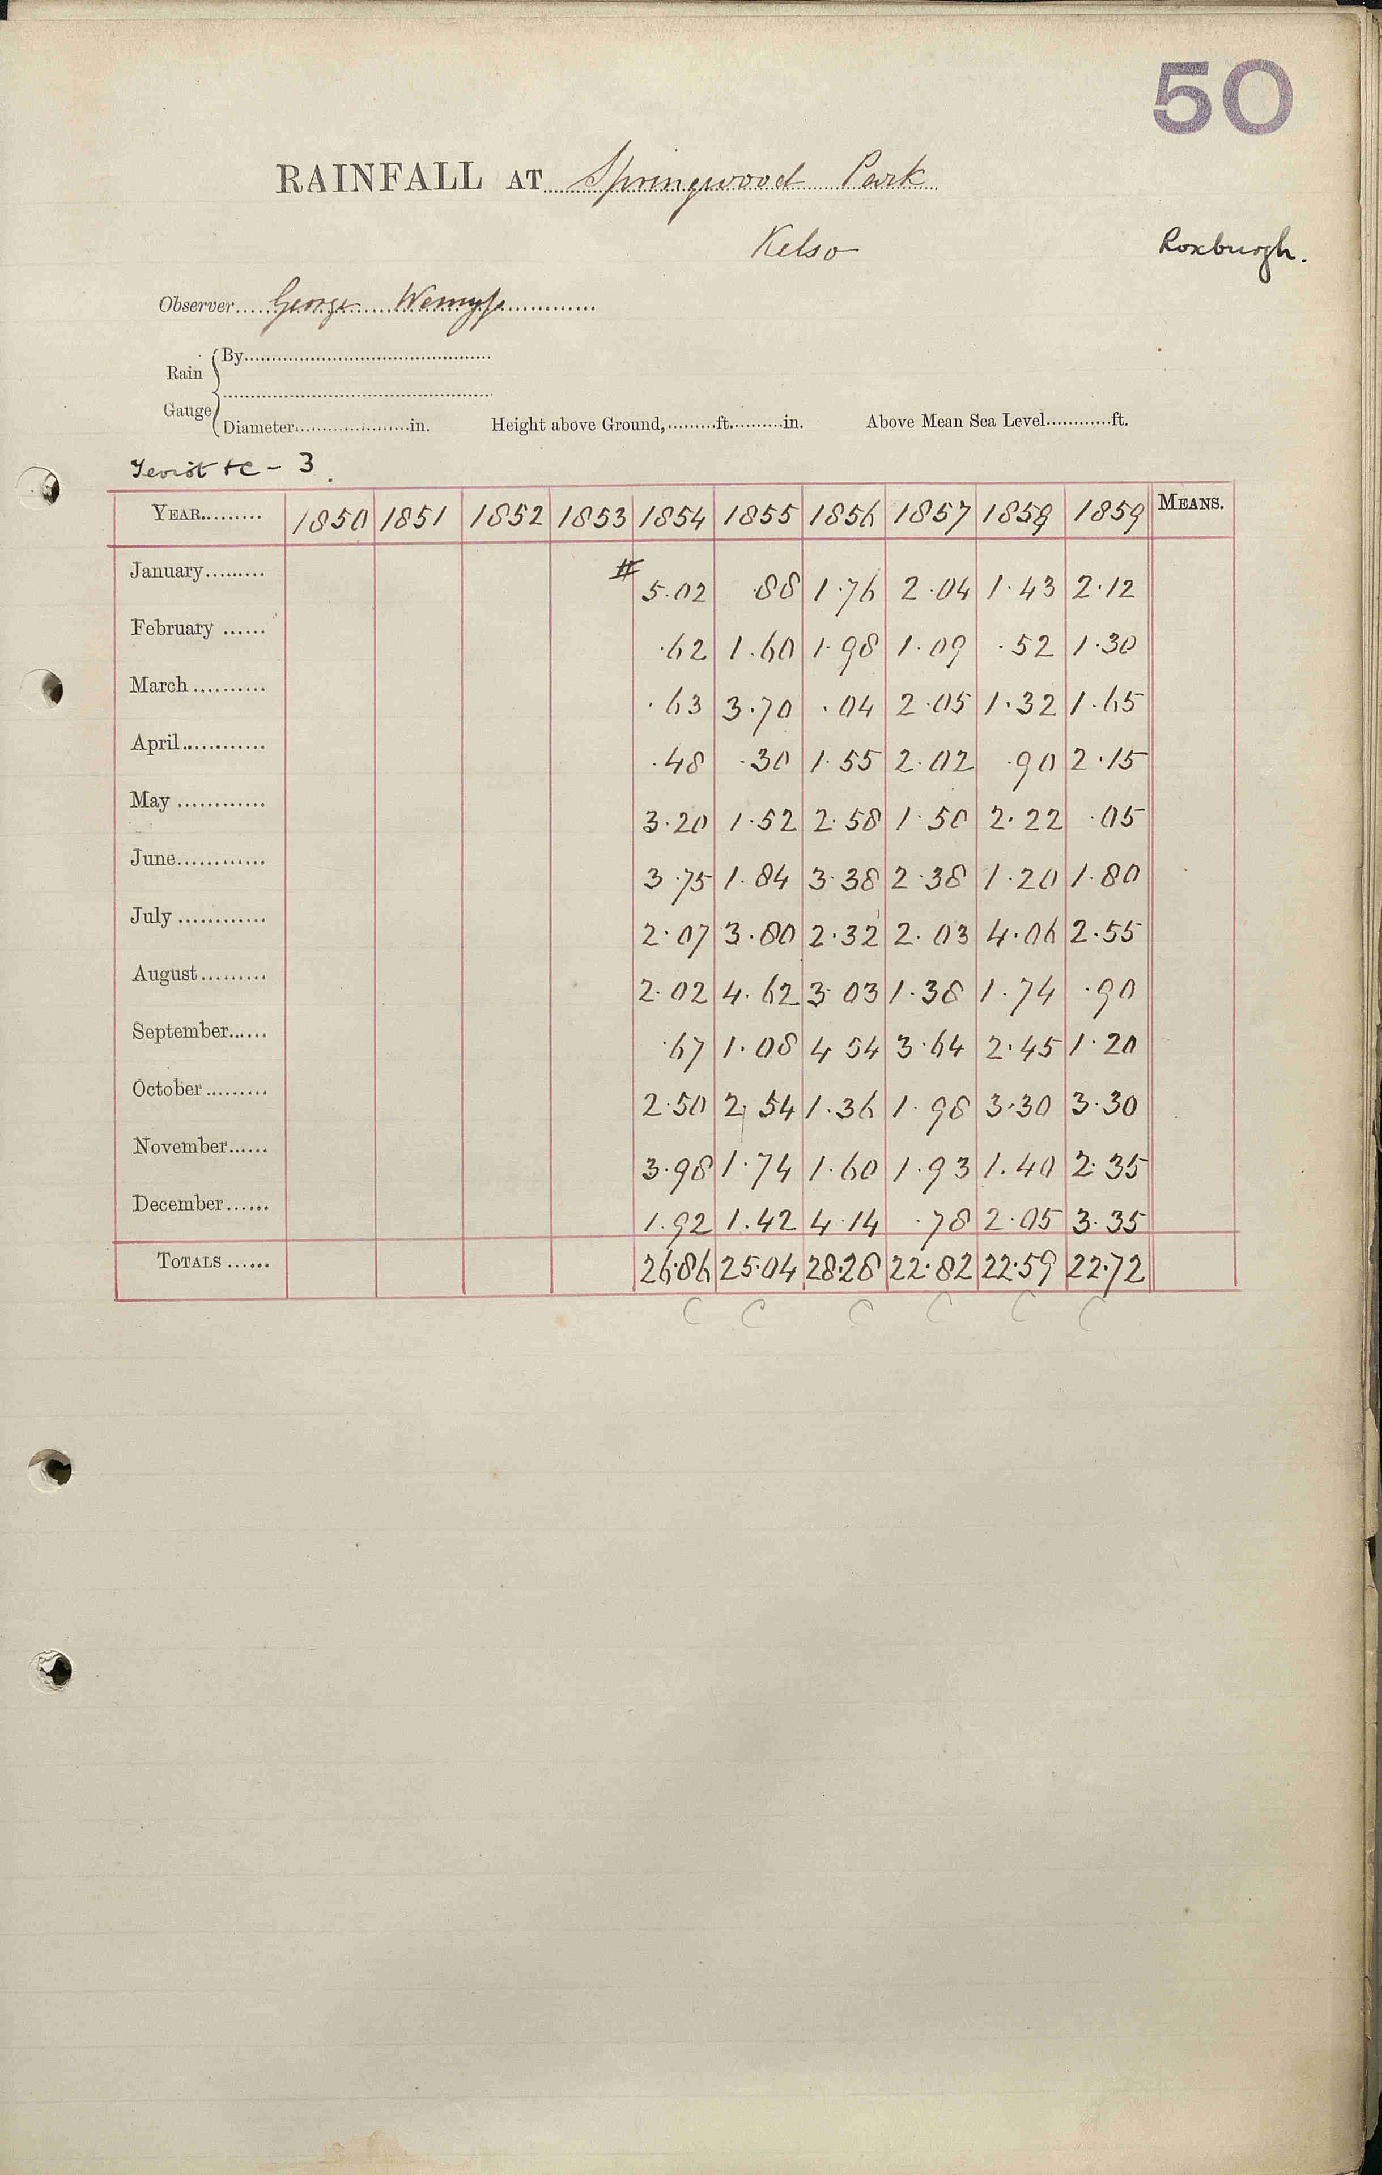 50
RAINFALL AT Springwood Park
Kelso Roxburgh.
Observer George Wemyss
Rain Gauge { By
Diameter in. Height above Ground, ft. in. Above Mean Sea Level ft.
Teviot &c - 3
YEAR 1850 1851 1852 1853 1854 1855 1856 1857 1858 1859 MEANS.
January # 5.02 .88 1.76 2.04 1.43 2.12
February .62 1.60 1.98 1.09 .52 1.30
March .63 3.70 .04 2.05 1.32 1.65
April .48 .30 1.55 2.02 .90 2.15
May 3.20 1.52 2.58 1.50 2.22 .05
June 3.75 1.84 3.38 2.38 1.20 1.80
July 2.07 3.80 2.32 2.03 4.06 2.55
August 2.02 4.62 3.03 1.38 1.74 .90
September .67 1.08 4.54 3.64 2.45 1.20
October 2.50 2.54 1.36 1.98 3.30 3.30
November 3.98 1.74 1.60 1.93 1.40 2.35
December 1.92 1.42 4.14 .78 2.05 3.35
TOTALS 26.86 25.04 28.28 22.82 22.59 22.72
C C C C C C